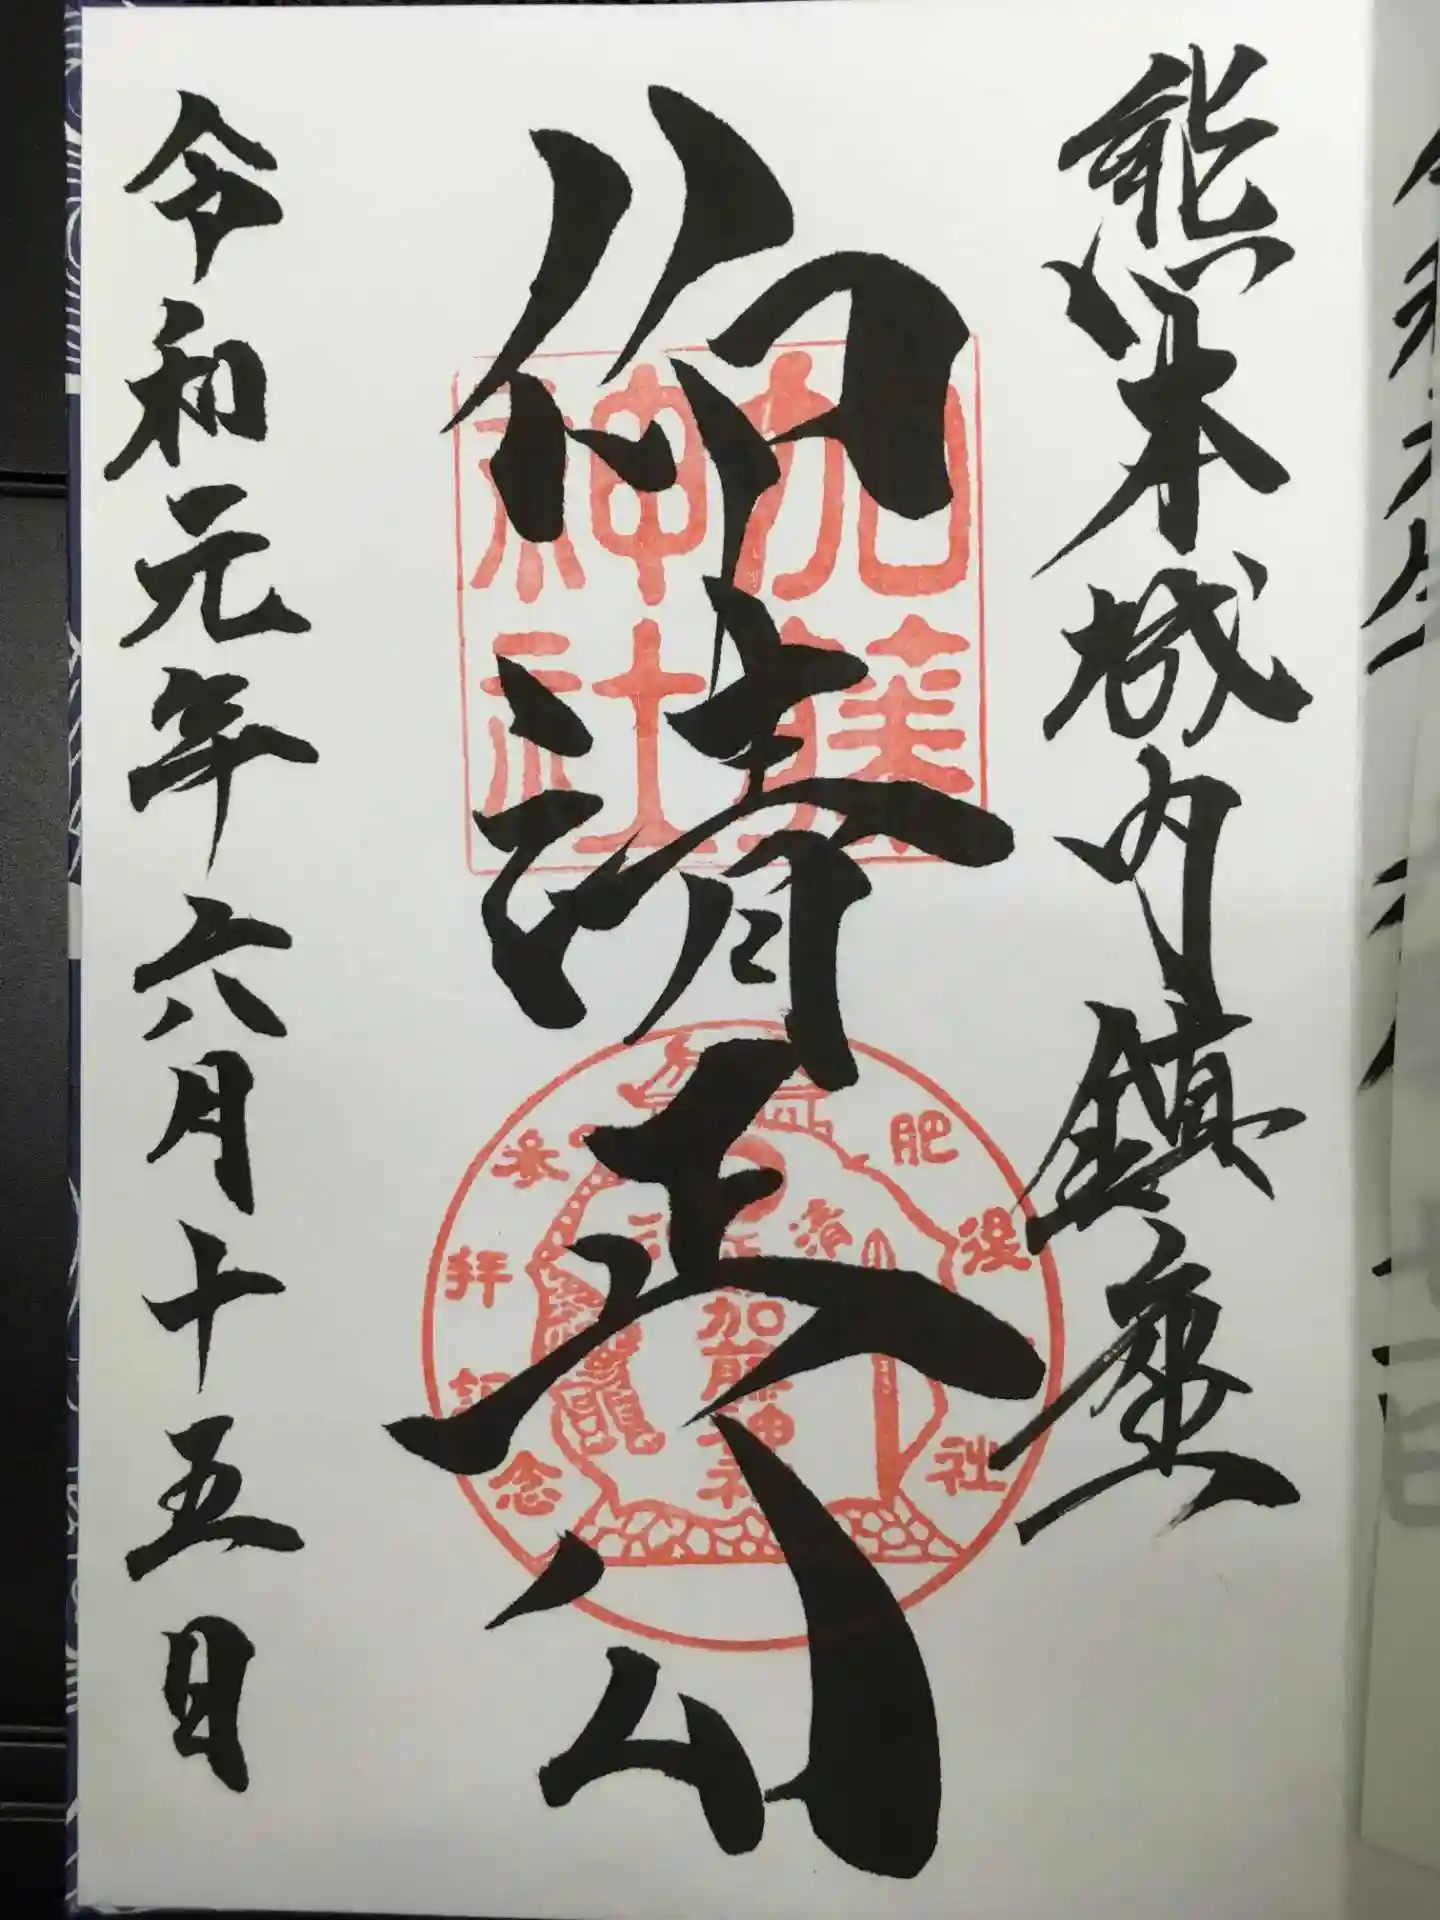 熊本城内鎮座
仰清正公
令和元年六月十五日
加藤
神社
肥後 社
参拝記念
清正
加藤神社